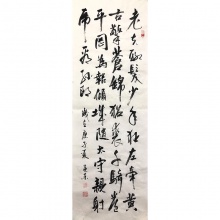 老夫聊髮少年狂左牽黄
右擎蒼錦帽貂裘千騎卷
平岡為報傾城隨太守親射
虎看孫郎